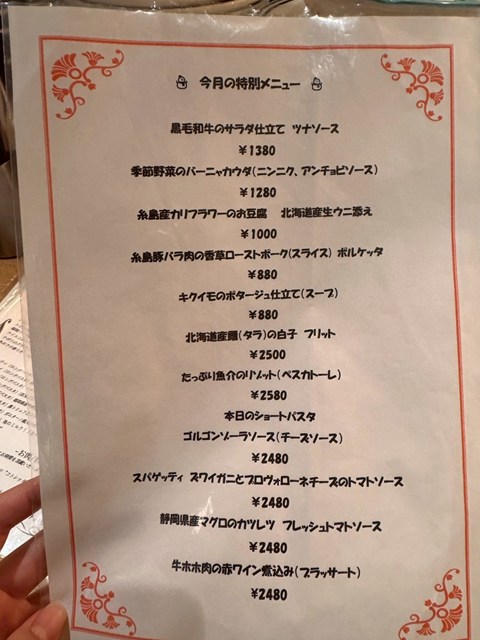 今月の特別メニュー
黒毛和牛のサラダ仕立て ツナソース
¥1380
季節野菜のバーニャカウダ(ニンニク、アンチョビソース)
¥1280
糸島産カリフラワーのお豆腐 北海道産生ウニ添え
¥1000
糸島豚バラ肉の香草ローストポーク(スライス) ポルケッタ
¥880
キクイモのポタージュ仕立て(スープ)
¥880
北海道産鱈(タラ)の白子 フリット
¥2500
たっぷり魚介のリゾット(ペスカトーレ)
¥2580
本日のショートパスタ
ゴルゴンゾーラソース(チーズソース)
¥2480
スパゲッティ ズワイガニとプロヴォローネチーズのトマトソース
¥2480
静岡県産マグロのカツレツ フレッシュトマトソース
¥2480
牛ホホ肉の赤ワイン煮込み(ブラッサート)
¥2480